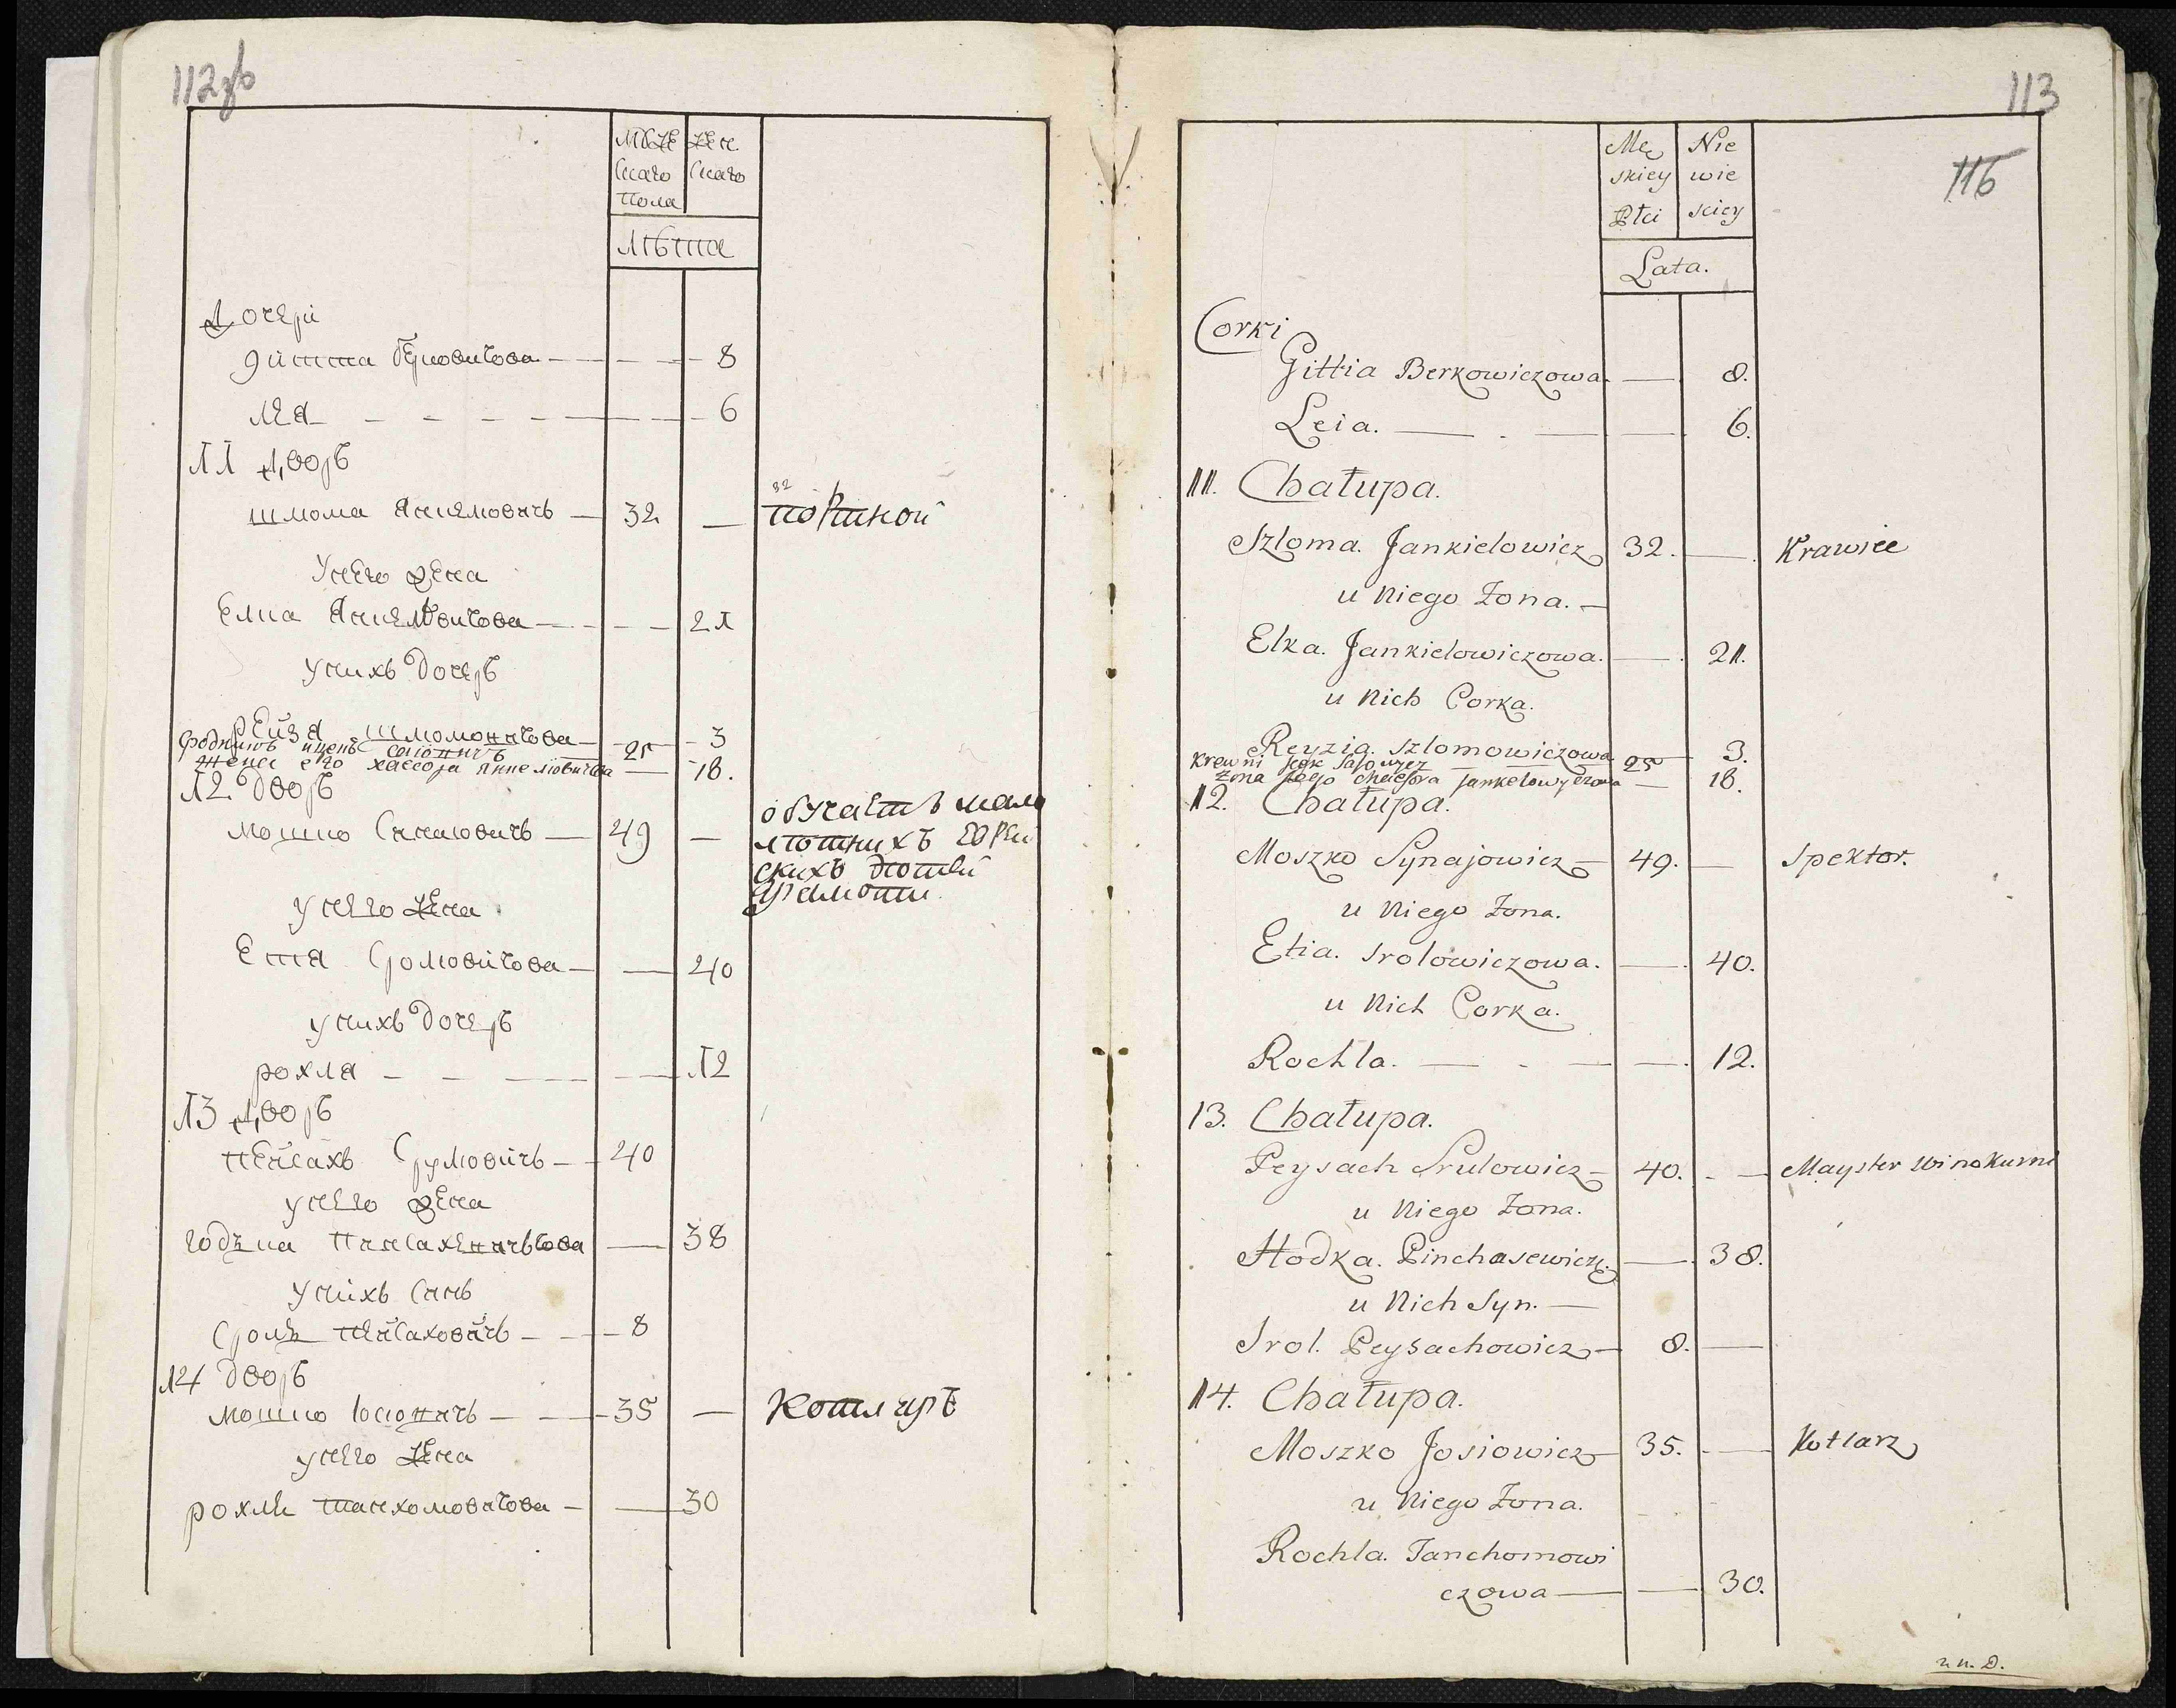 112об
Муже
скаго
пола
жен
скаго
лѣта
Дочери
Гитта Берковичова — 8
Лея — 6
11 Дворъ
Шлома Янкеловичъ — 32 — портной
У него жена
Елка Янкеловичова — 21
У нихъ дочеръ
Рейзя Шломовичова — 3
25
жена его Хаесора Янкеловичова — 18.
12 дворъ
Мошко Синаиовичъ — 49 —
обучаетъ мало
лѣтнихъ еврей
скихъ дѣтей
грамоти
У него жена
Етя Сролювичова — 40
У нихъ дочеръ
Рохля — 12
13 Дворъ
Пейсахъ Срулювичъ — 40
У него жена
Годка Пинсахевичьова — 38
У нихъ синъ
Сроль Пейсаховичъ — 8
14 дворъ
Мошко Іосіовичъ — 35 — Котляръ
У него жена
Рохля Танхомовичова — 30
113
116
Mę
skiey
Płci
Nie
wie
sciey
Lata.
Corki
Gittia Berkowiczowa. — 8.
Leia. — 6.
11. Chałupa.
Szloma. Jankielowicz 32. — Krawiec
u Niego Zona. —
Elka. Jankielowiczowa. — 21.
u Nich Corka.
Reyzia. Szlomowiczowa — 3.
Krewni Icek 25
Zona jego Chaesora Jankelowyczowa — 18.
12. Chałupa.
Moszko Synajowicz — 49. — Spektor.
u Niego Zona.
Etia. Srolowiczowa. — 40.
u Nich Corka.
Rochla. — 12.
13. Chałupa.
Peysach Srulowicz — 40. — Mayster Winokurni
u Niego Zona.
Hodka. Pinchasewicz. — 38.
u Nich Syn. —
Srol. Peysachowicz — 8. —
14. Chałupa.
Moszko Josiowicz — 35. — Kotlarz
u Niego Zona.
Rochla. Tanchomowi
czowa — 30.